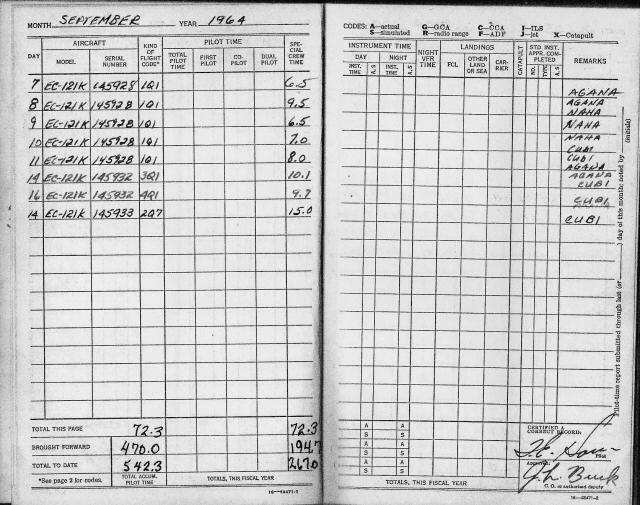 MONTH SEPTEMBER YEAR 1964
AIRCRAFT PILOT TIME
DAY MODEL SERIAL NUMBER KIND OF FLIGHT CODE* TOTAL PILOT TIME FIRST PILOT CO-PILOT DUAL PILOT SPECIAL CREW TIME
7 EC-121K 145928 1Q1 6.5
8 EC-121K 145928 1Q1 9.5
9 EC-121K 145928 1Q1 6.5
10 EC-121K 145928 1Q1 7.0
11 EC-121K 145928 1Q1 8.0
14 EC-121K 145932 3Q1 10.1
16 EC-121K 145932 4Q1 9.7
14 EC-121K 145933 2Q7 15.0
TOTAL THIS PAGE 72.3 72.3
BROUGHT FORWARD 470.0 194.7
TOTAL TO DATE 542.3 267.0
*See page 2 for codes. TOTAL ACCUM. PILOT TIME TOTALS, THIS FISCAL YEAR
16—48471-2
CODES: A—actual G—GCA C—CCA I—ILS
S—simulated R—radio range F—ADF J—jet X—Catapult
INSTRUMENT TIME NIGHT VFR TIME LANDINGS CATAPULT STD INST. APPR. COMPLETED REMARKS
DAY NIGHT FCL OTHER LAND OR SEA CARRIER NO. TYPE A.S
INST. TIME A.S INST. TIME A.S
AGANA
AGANA
NAHA
NAHA
NAHA
CUBI
CUBI
AGANA
AGANA
CUBI
CUBI
CUBI
Pilot-time report submitted through last (or ) day of this month; noted by (initials)
A A CERTIFIED A CORRECT RECORD:
S S
A A Pilot
S S Approved:
A A J.L. Burk
S S C. O. or authorized deputy
TOTALS, THIS FISCAL YEAR
16—48471-2